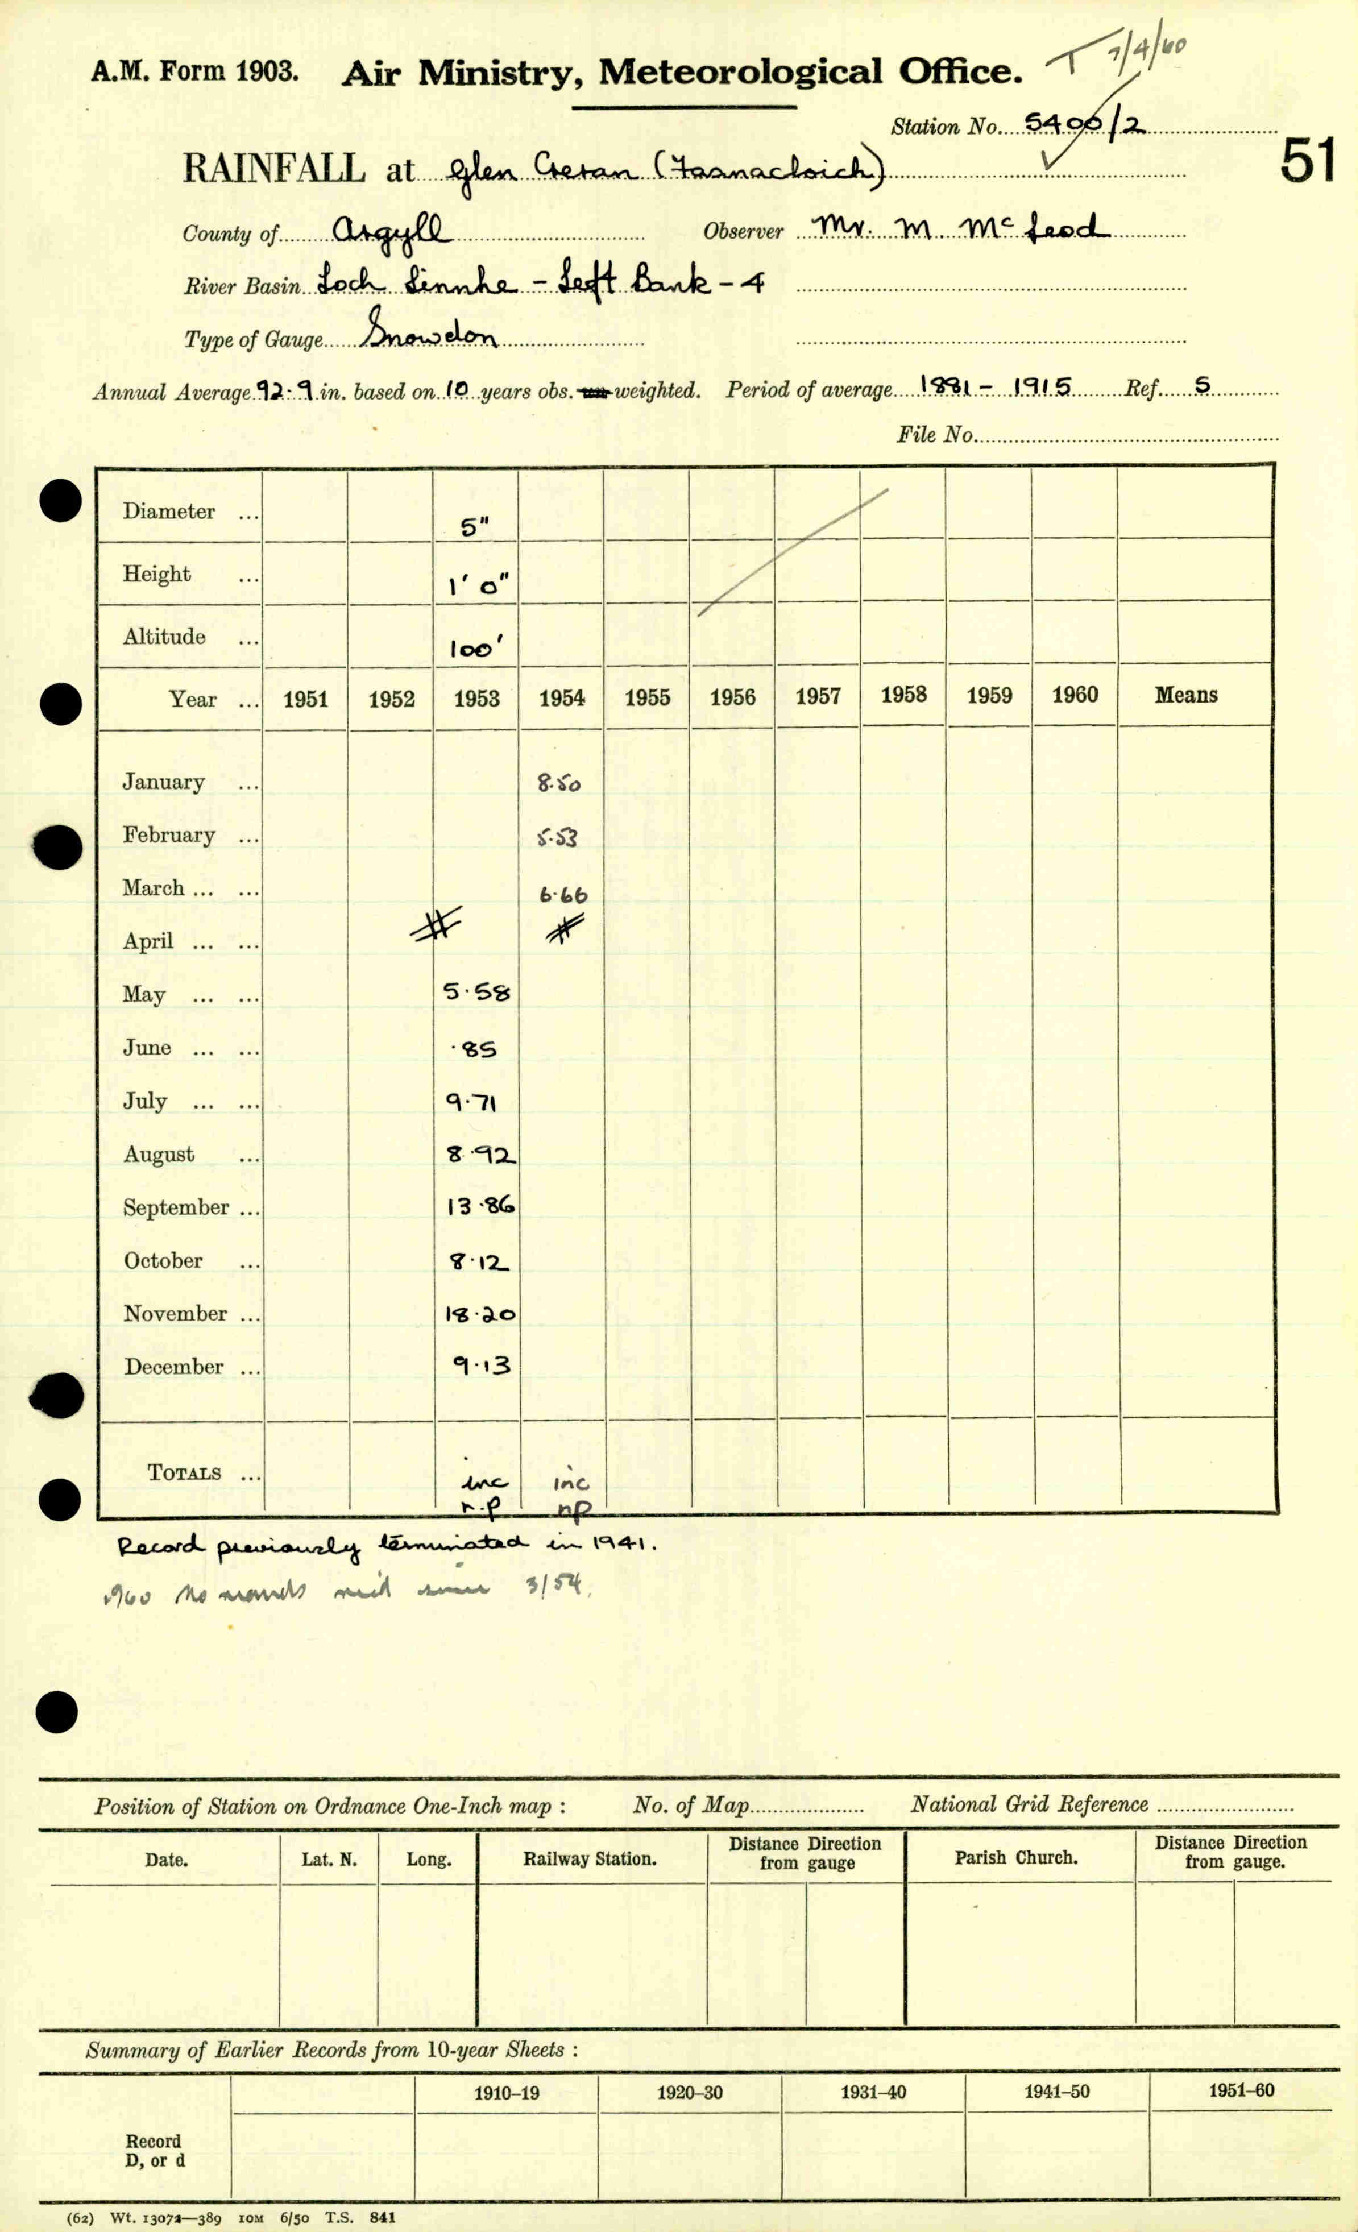 T 7/4/60
A.M. Form 1903. Air Ministry, Meteorological Office.
Station No. 5400/2
51
RAINFALL at Glen Creran (Fasnacloich)
County of Argyll Observer Mr. M McLeod
River Basin Loch Linnhe - Left Bank - 4
Type of Gauge Snowdon
Annual Average 92.9 in. based on 10 years obs. un-weighted. Period of average 1881 - 1915 Ref. 5
File No.
Diameter ... 5"
Height ... 1' 0"
Altitude ... 100'
Year ... 1951 1952 1953 1954 1955 1956 1957 1958 1959 1960 Means
January ... 8.50
February ... 5.53
March ... ... 6.66
April ... ... # #
May ... ... 5.58
June ... ... .85
July ... ... 9.71
August ... 8.92
September ... 13.86
October ... 8.12
November ... 18.20
December ... 9.13
TOTALS ... inc inc
n.p np
Record previously terminated in 1941.
1960 No records rec'd since 3/54.
Position of Station on Ordnance One-Inch map : No. of Map National Grid Reference
Date. Lat. N. Long. Railway Station. Distance Direction from gauge Parish Church. Distance Direction from gauge.
Summary of Earlier Records from 10-year Sheets :
1910–19 1920–30 1931–40 1941–50 1951–60
Record
D, or d
(62) Wt. 13072—389 10M 6/50 T.S. 841